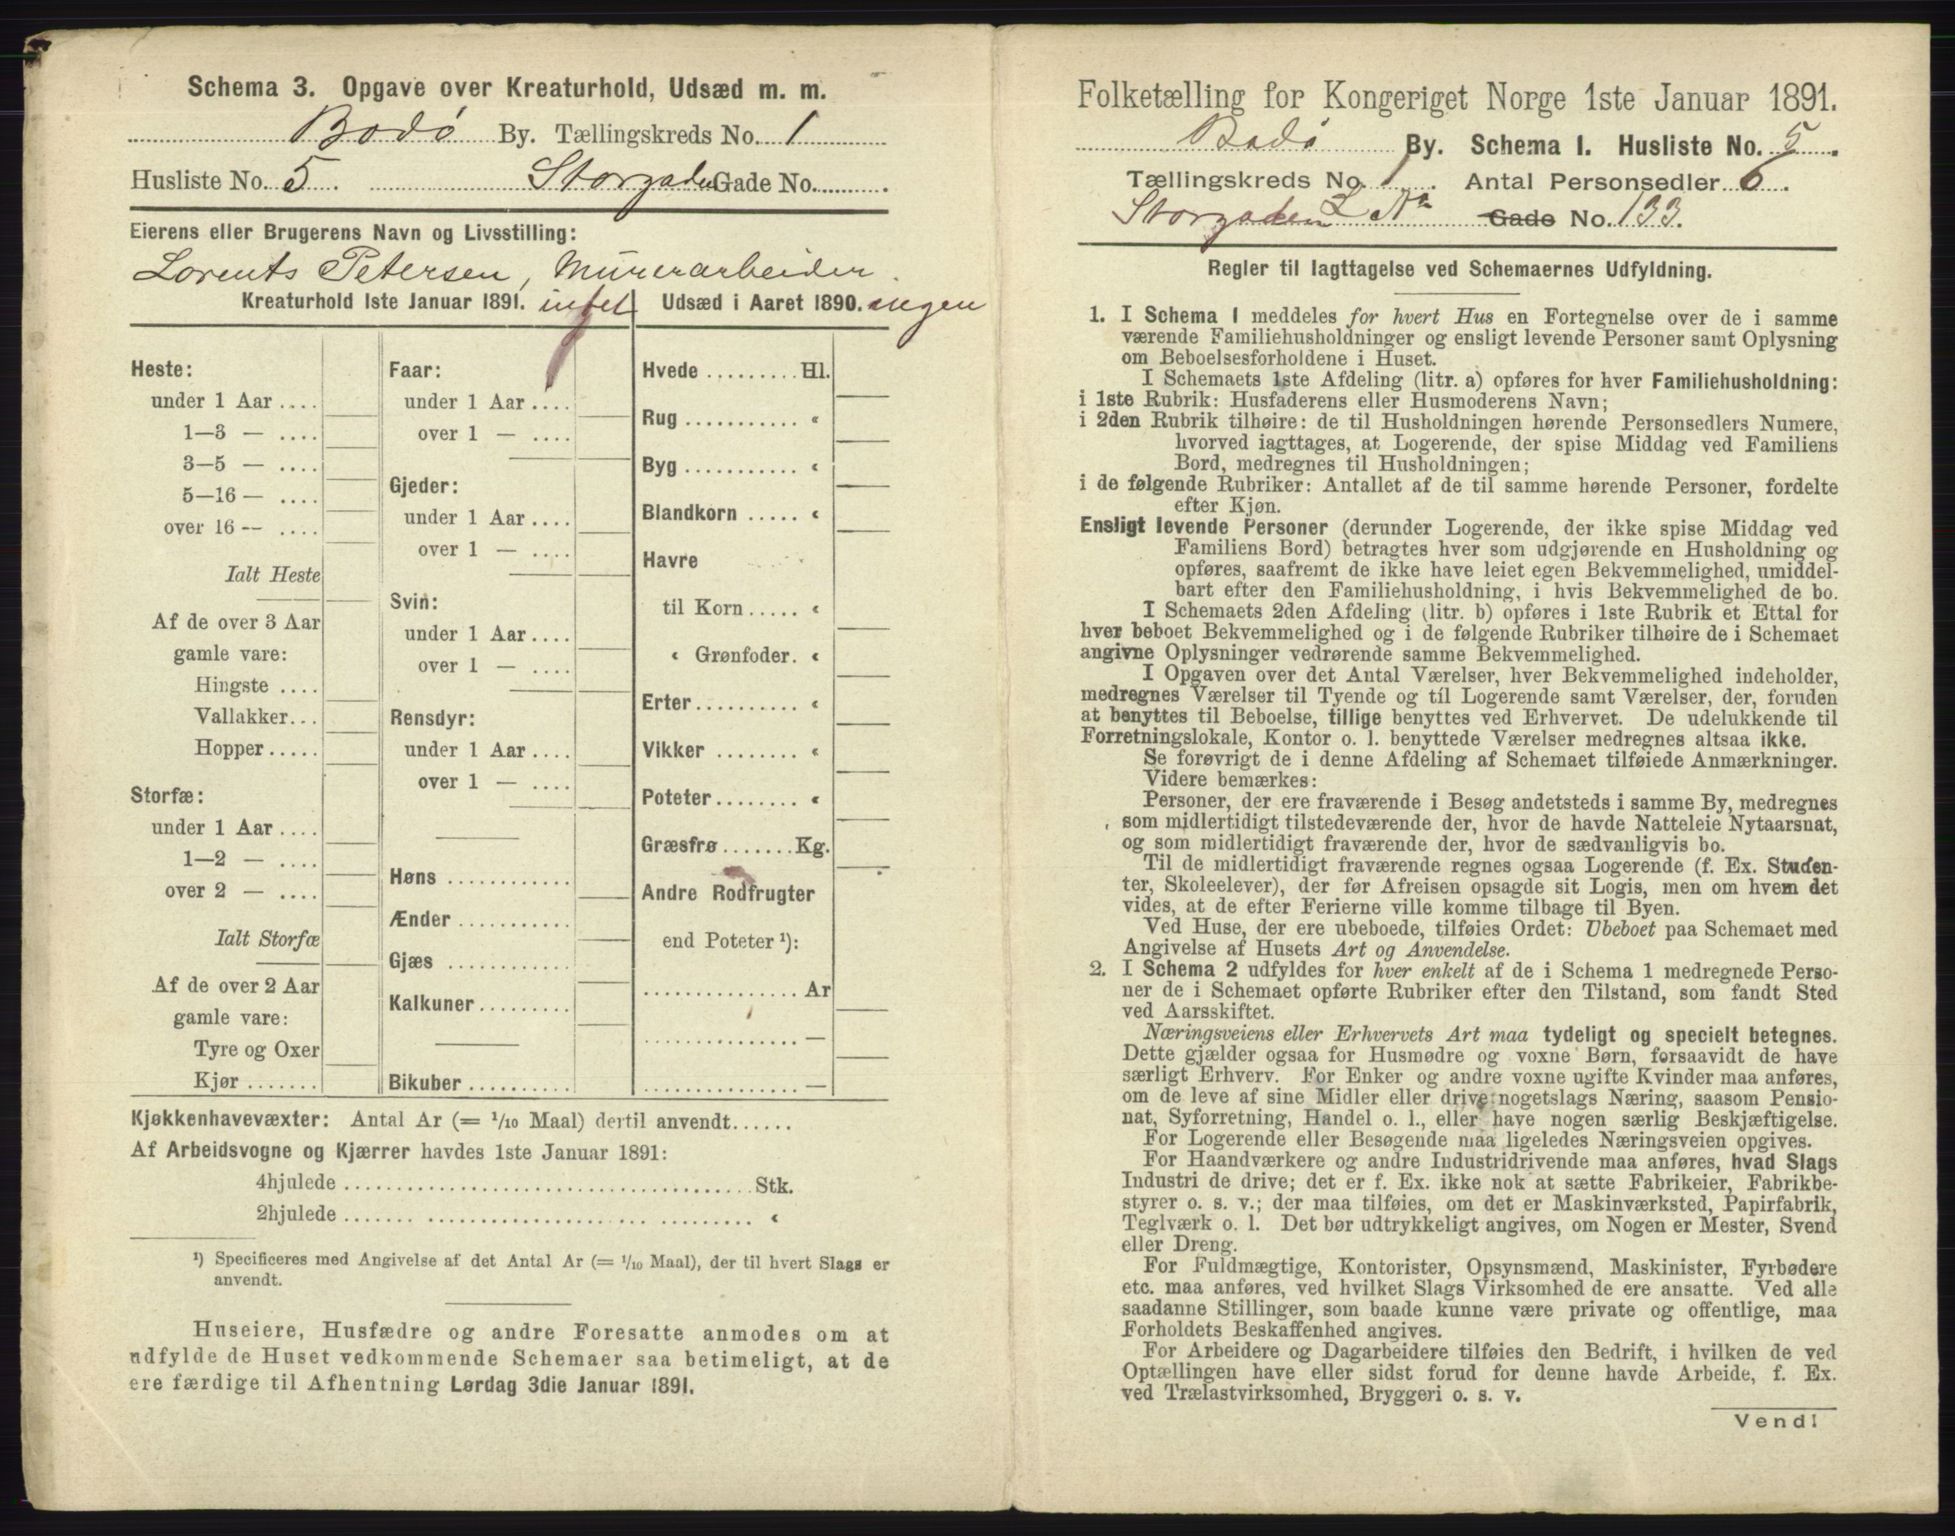 Schema 3. Opgave over Kreaturhold, Udsæd m. m.
Bodø By. Tællingskreds No. 1
Husliste No. 5. Storgaden Gade No.
Eierens eller Brugerens Navn og Livsstilling:
Lorents Petersen, Murerarbeider.
Kreaturhold 1ste Januar 1891. intet
Heste:
under 1 Aar
1—3 —
3—5 —
5—16 —
over 16 —
Ialt Heste
Af de over 3 Aar
gamle vare:
Hingste
Vallakker
Hopper
Storfæ:
under 1 Aar
1—2 —
over 2 —
Ialt Storfæ
Af de over 2 Aar
gamle vare:
Tyre og Oxer
Kjør
Faar:
under 1 Aar
over 1 —
Gjeder:
under 1 Aar
over 1 —
Svin:
under 1 Aar
over 1 —
Rensdyr:
under 1 Aar
over 1 —
Høns
Ænder
Gjæs
Kalkuner
Bikuber
Udsæd i Aaret 1890. ingen
Hvede Hl.
Rug «
Byg «
Blandkorn «
Havre
til Korn «
« Grønfoder. «
Erter «
Vikker «
Poteter «
Græsfrø Kg.
Andre Rodfrugter
end Poteter ¹):
Ar
—
—
Kjøkkenhavevæxter: Antal Ar (= 1/10 Maal) dertil anvendt
Af Arbeidsvogne og Kjærrer havdes 1ste Januar 1891:
4hjulede Stk.
2hjulede «
¹) Specificeres med Angivelse af det Antal Ar (= 1/10 Maal), der til hvert Slags er
anvendt.
Huseiere, Husfædre og andre Foresatte anmodes om at
udfylde de Huset vedkommende Schemaer saa betimeligt, at de
ere færdige til Afhentning Lørdag 3die Januar 1891.
Folketælling for Kongeriget Norge 1ste Januar 1891.
Bodø By. Schema 1. Husliste No. 5.
Tællingskreds No. 1. Antal Personsedler 6.
Storgaden L Nr Gade No. 133.
Regler til Iagttagelse ved Schemaernes Udfyldning.
1. I Schema 1 meddeles for hvert Hus en Fortegnelse over de i samme
værende Familiehusholdninger og ensligt levende Personer samt Oplysning
om Beboelsesforholdene i Huset.
I Schemaets 1ste Afdeling (litr. a) opføres for hver Familiehusholdning:
i 1ste Rubrik: Husfaderens eller Husmoderens Navn;
i 2den Rubrik tilhøire: de til Husholdningen hørende Personsedlers Numere,
hvorved iagttages, at Logerende, der spise Middag ved Familiens
Bord, medregnes til Husholdningen;
i de følgende Rubriker: Antallet af de til samme hørende Personer, fordelte
efter Kjøn.
Ensligt levende Personer (derunder Logerende, der ikke spise Middag ved
Familiens Bord) betragtes hver som udgjørende en Husholdning og
opføres, saafremt de ikke have leiet egen Bekvemmelighed, umiddel-
bart efter den Familiehusholdning, i hvis Bekvemmelighed de bo.
I Schemaets 2den Afdeling (litr. b) opføres i 1ste Rubrik et Ettal for
hver beboet Bekvemmelighed og i de følgende Rubriker tilhøire de i Schemaet
angivne Oplysninger vedrørende samme Bekvemmelighed.
I Opgaven over det Antal Værelser, hver Bekvemmelighed indeholder,
medregnes Værelser til Tyende og til Logerende samt Værelser, der, foruden
at benyttes til Beboelse, tillige benyttes ved Erhvervet. De udelukkende til
Forretningslokale, Kontor o. l. benyttede Værelser medregnes altsaa ikke.
Se forøvrigt de i denne Afdeling af Schemaet tilføiede Anmærkninger.
Videre bemærkes:
Personer, der ere fraværende i Besøg andetsteds i samme By, medregnes
som midlertidigt tilstedeværende der, hvor de havde Natteleie Nytaarsnat,
og som midlertidigt fraværende der, hvor de sædvanligvis bo.
Til de midlertidigt fraværende regnes ogsaa Logerende (f. Ex. Studen-
ter, Skoleelever), der før Afreisen opsagde sit Logis, men om hvem det
vides, at de efter Ferierne ville komme tilbage til Byen.
Ved Huse, der ere ubeboede, tilføies Ordet: Ubeboet paa Schemaet med
Angivelse af Husets Art og Anvendelse.
2. I Schema 2 udfyldes for hver enkelt af de i Schema 1 medregnede Perso-
ner de i Schemaet opførte Rubriker efter den Tilstand, som fandt Sted
ved Aarsskiftet.
Næringsveiens eller Erhvervets Art maa tydeligt og specielt betegnes.
Dette gjælder ogsaa for Husmødre og voxne Børn, forsaavidt de have
særligt Erhverv. For Enker og andre voxne ugifte Kvinder maa anføres,
om de leve af sine Midler eller drive nogetslags Næring, saasom Pensio-
nat, Syforretning, Handel o. l., eller have nogen særlig Beskjæftigelse.
For Logerende eller Besøgende maa ligeledes Næringsveien opgives.
For Haandværkere og andre Industridrivende maa anføres, hvad Slags
Industri de drive; det er f. Ex. ikke nok at sætte Fabrikeier, Fabrikbe-
styrer o. s. v.; der maa tilføies, om det er Maskinværksted, Papirfabrik,
Teglværk o. l. Det bør udtrykkeligt angives, om Nogen er Mester, Svend
eller Dreng.
For Fuldmægtige, Kontorister, Opsynsmænd, Maskinister, Fyrbødere
etc. maa anføres, ved hvilket Slags Virksomhed de ere ansatte. Ved alle
saadanne Stillinger, som baade kunne være private og offentlige, maa
Forholdets Beskaffenhed angives.
For Arbeidere og Dagarbeidere tilføies den Bedrift, i hvilken de ved
Optællingen have eller sidst forud for denne havde Arbeide, f. Ex.
ved Trælastvirksomhed, Bryggeri o. s. v.
Vend!